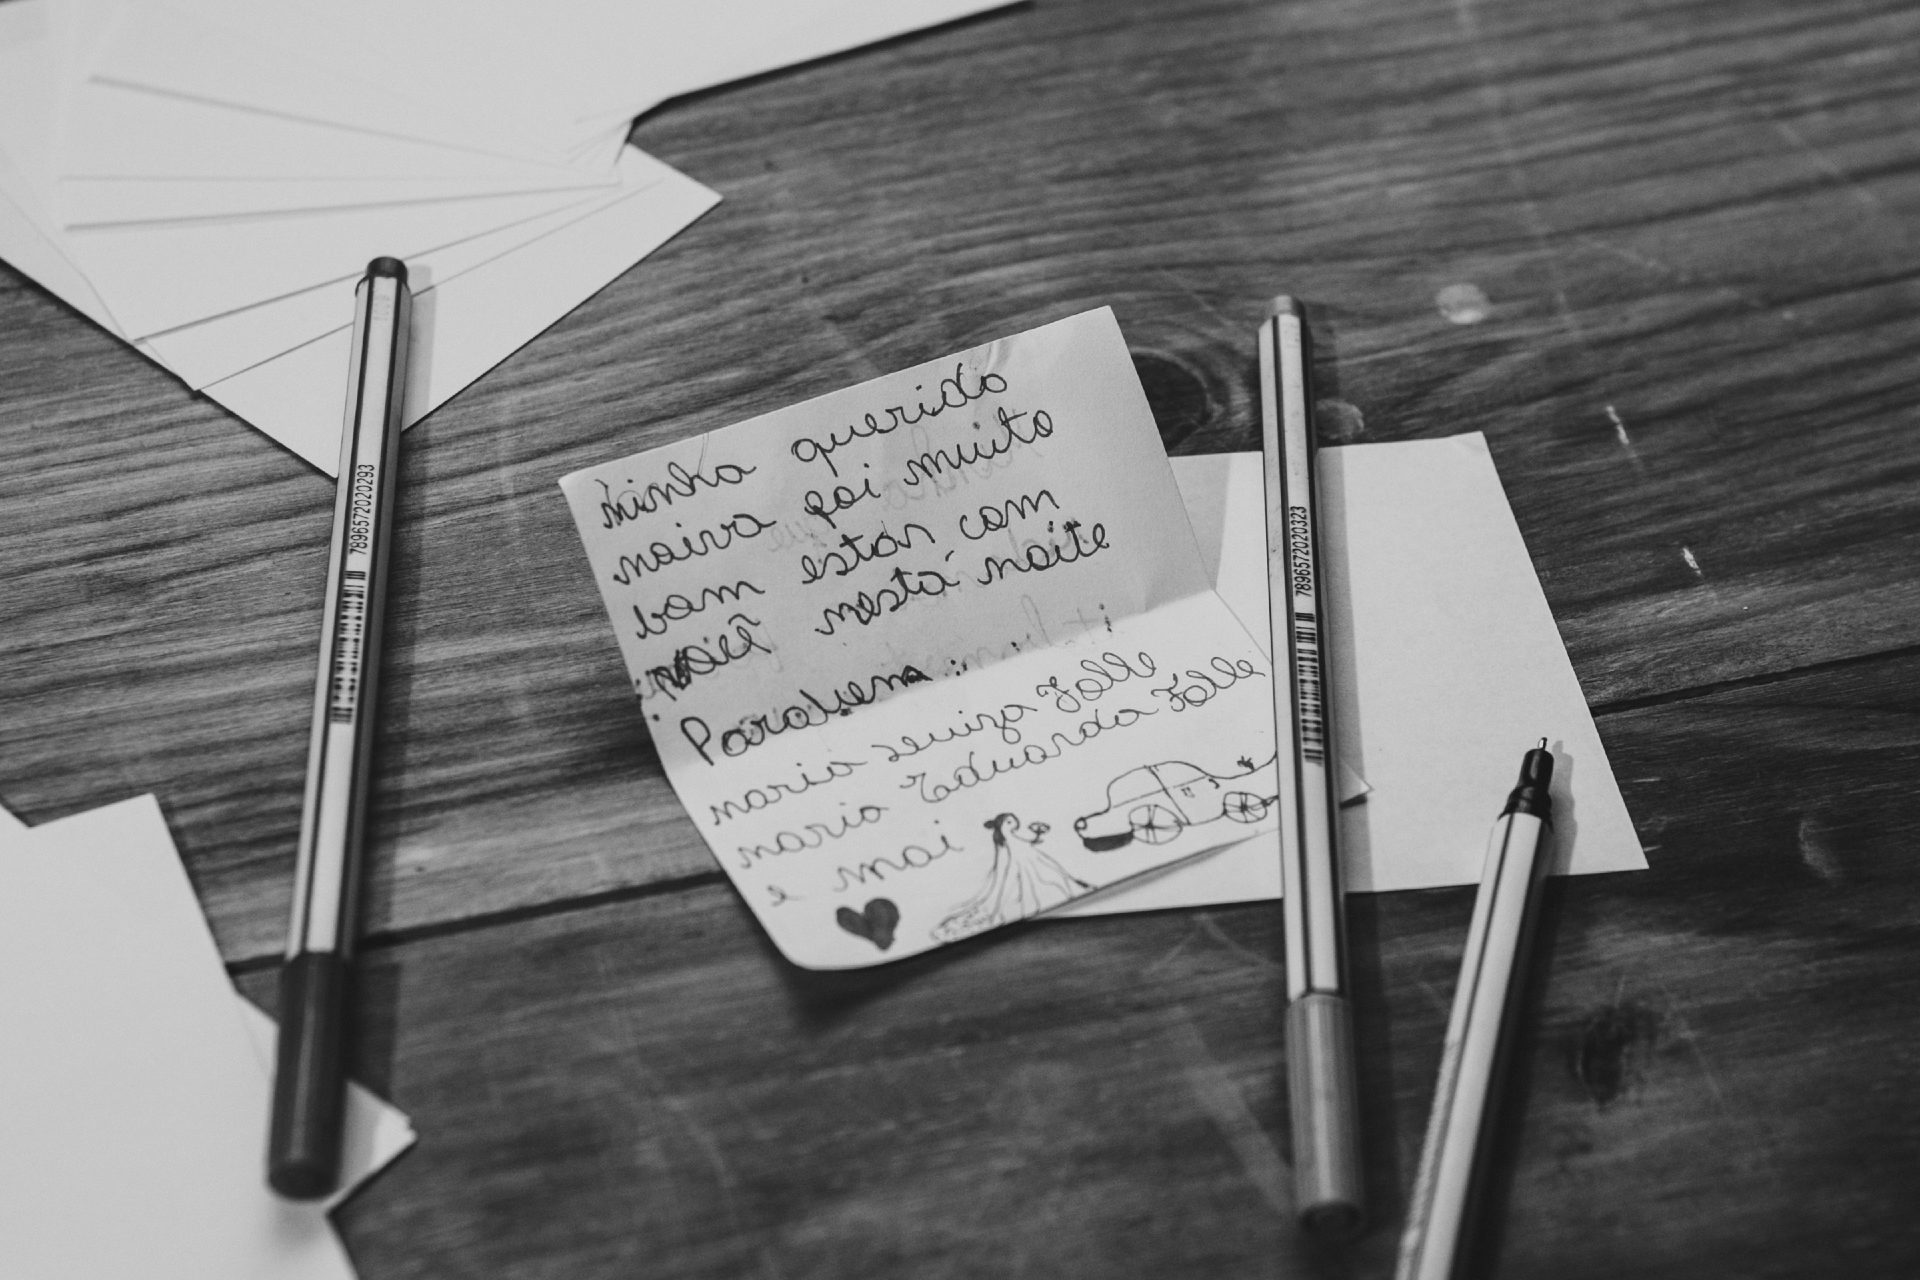 minha querida
noiva foi muito
bom estar com
você nesta noite
Parabens
maria Luiza Falle
maria Eduarda Falle
e mai
7896572020293
7896572020323